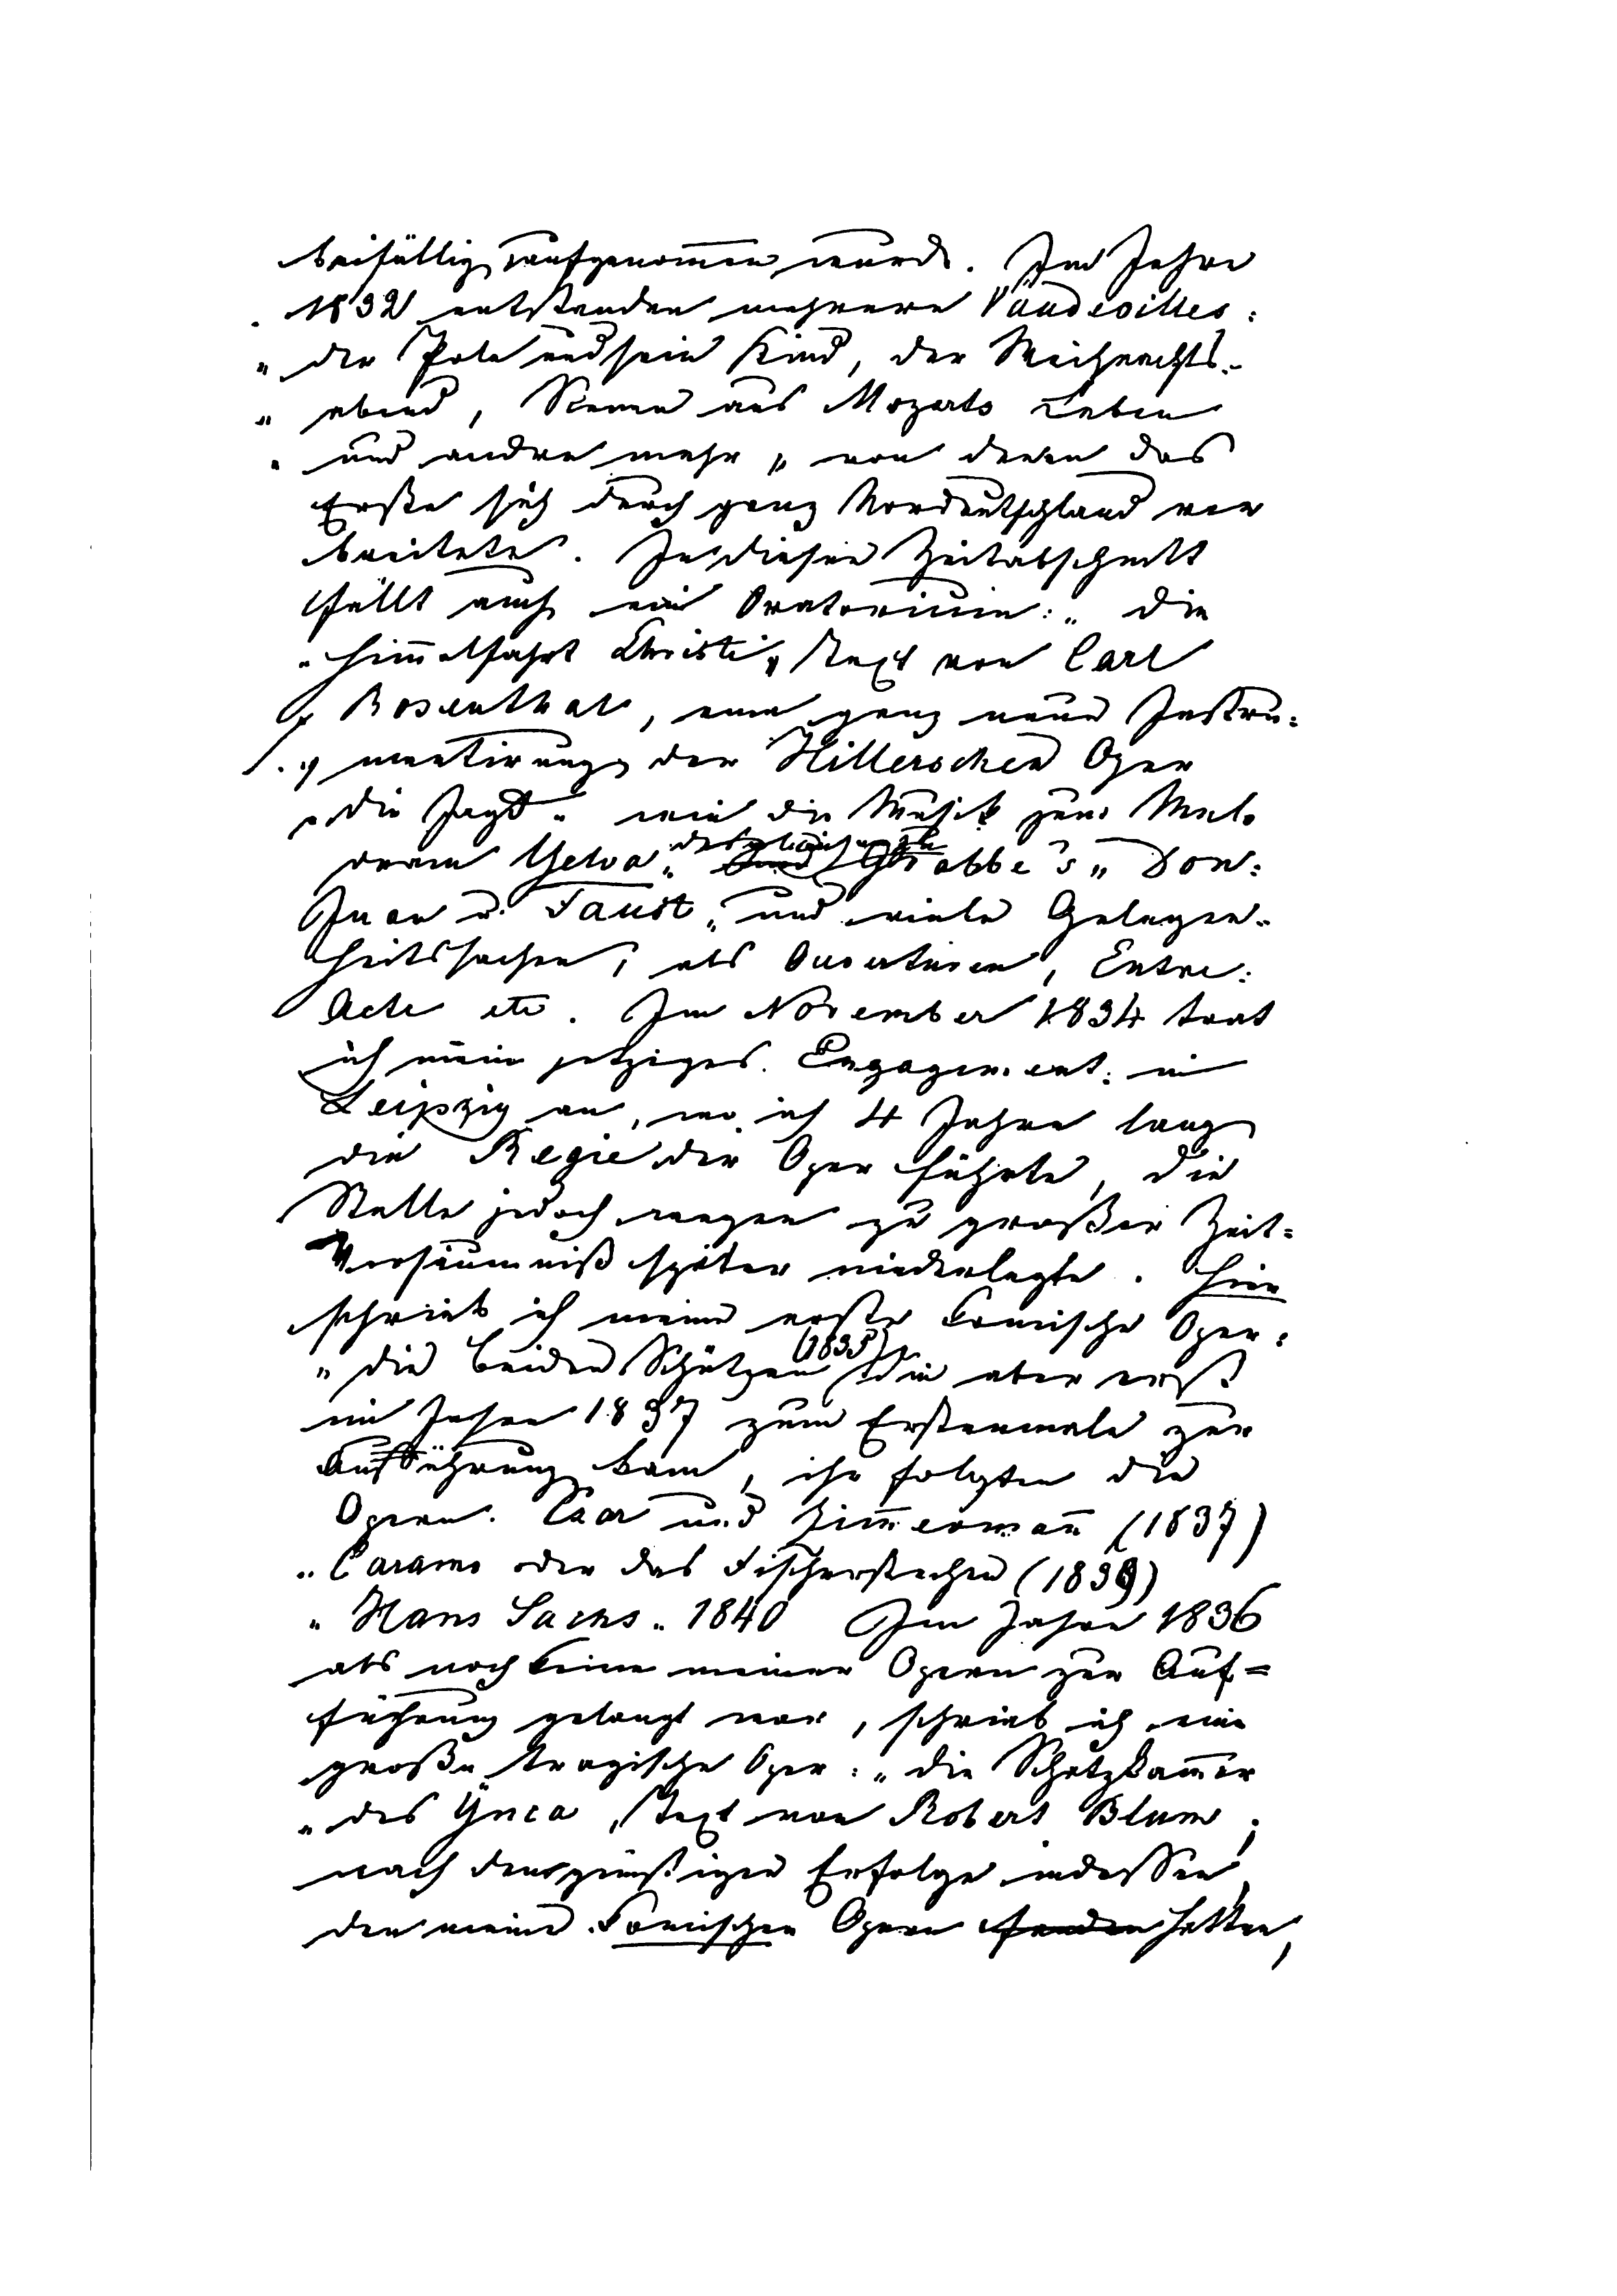 beifällig aufgenommen wurde. Im Jahre
1832 entstanden mehrere Vaudevilles:
„der Pole und sein Kind, der Weihnachts-
„abend, Scenen aus Mozarts Leben
„und andre mehr„ von denen das
Erste sich durch ganz Nordeutschland ver
breitete. In diesen Zeitabschnitt
fällt auch ein Oratorium: „die
„Himelfahrt Christi„ Text von Carl
Rosenthal, eine ganz neue Instru:
mentirung der Hillerschen Oper
„die Jagd„ wie die Musik zum Melo
dram Yelva„ desgleichen zu Grabbe's „Don:
Juan u. Faust„ und viele Gelegen-
heitssachen, als Ouverturen, Entre:
Acte etc. Im November 1834 trat
ich mein jetziges Engagement in
Leipzig an, wo ich 4 Jahre lang
die Regie der Oper führte, die
Stelle jedoch wegen zu großer Zeit-
Versäumniß später niederlegte. Hier
schrieb ich meine erste komische Oper:
„die beiden Schützen (1835) die aber erst
im Jahre 1837 zum Erstenmale zur
Aufführung kam, ihr folgten die
Opern. Czar und Zim̄erman̄ (1837)
„Caramo oder das Fischerstechen (1839)
„Hans Sachs„ 1840 Im Jahre 1836
als noch keine meiner Opern zur Auf=
führung gelangt war, schrieb ich eine
große tragische Oper: „die Schatzkam̄er
„des Ynca, Text von Robert Blum;
nach dem günstigen Erfolge indessen,
den meine komischen Opern fanden hatten,